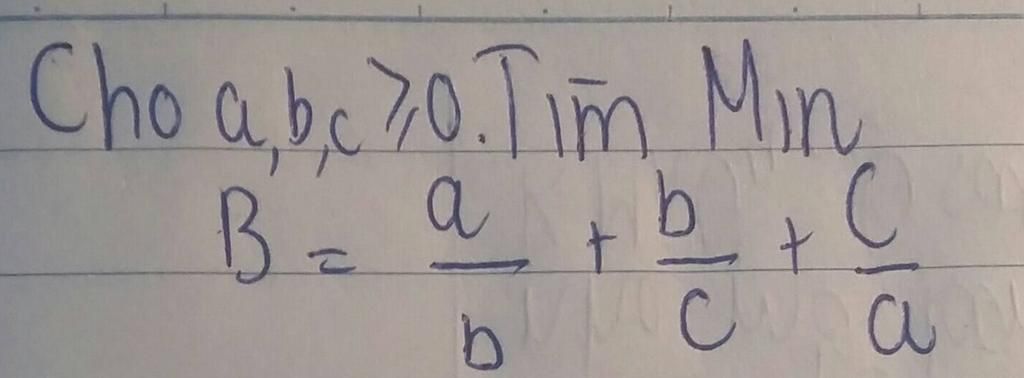 Cho a,b,c ⩾ 0. Tìm Min
B = a/b + b/c + c/a